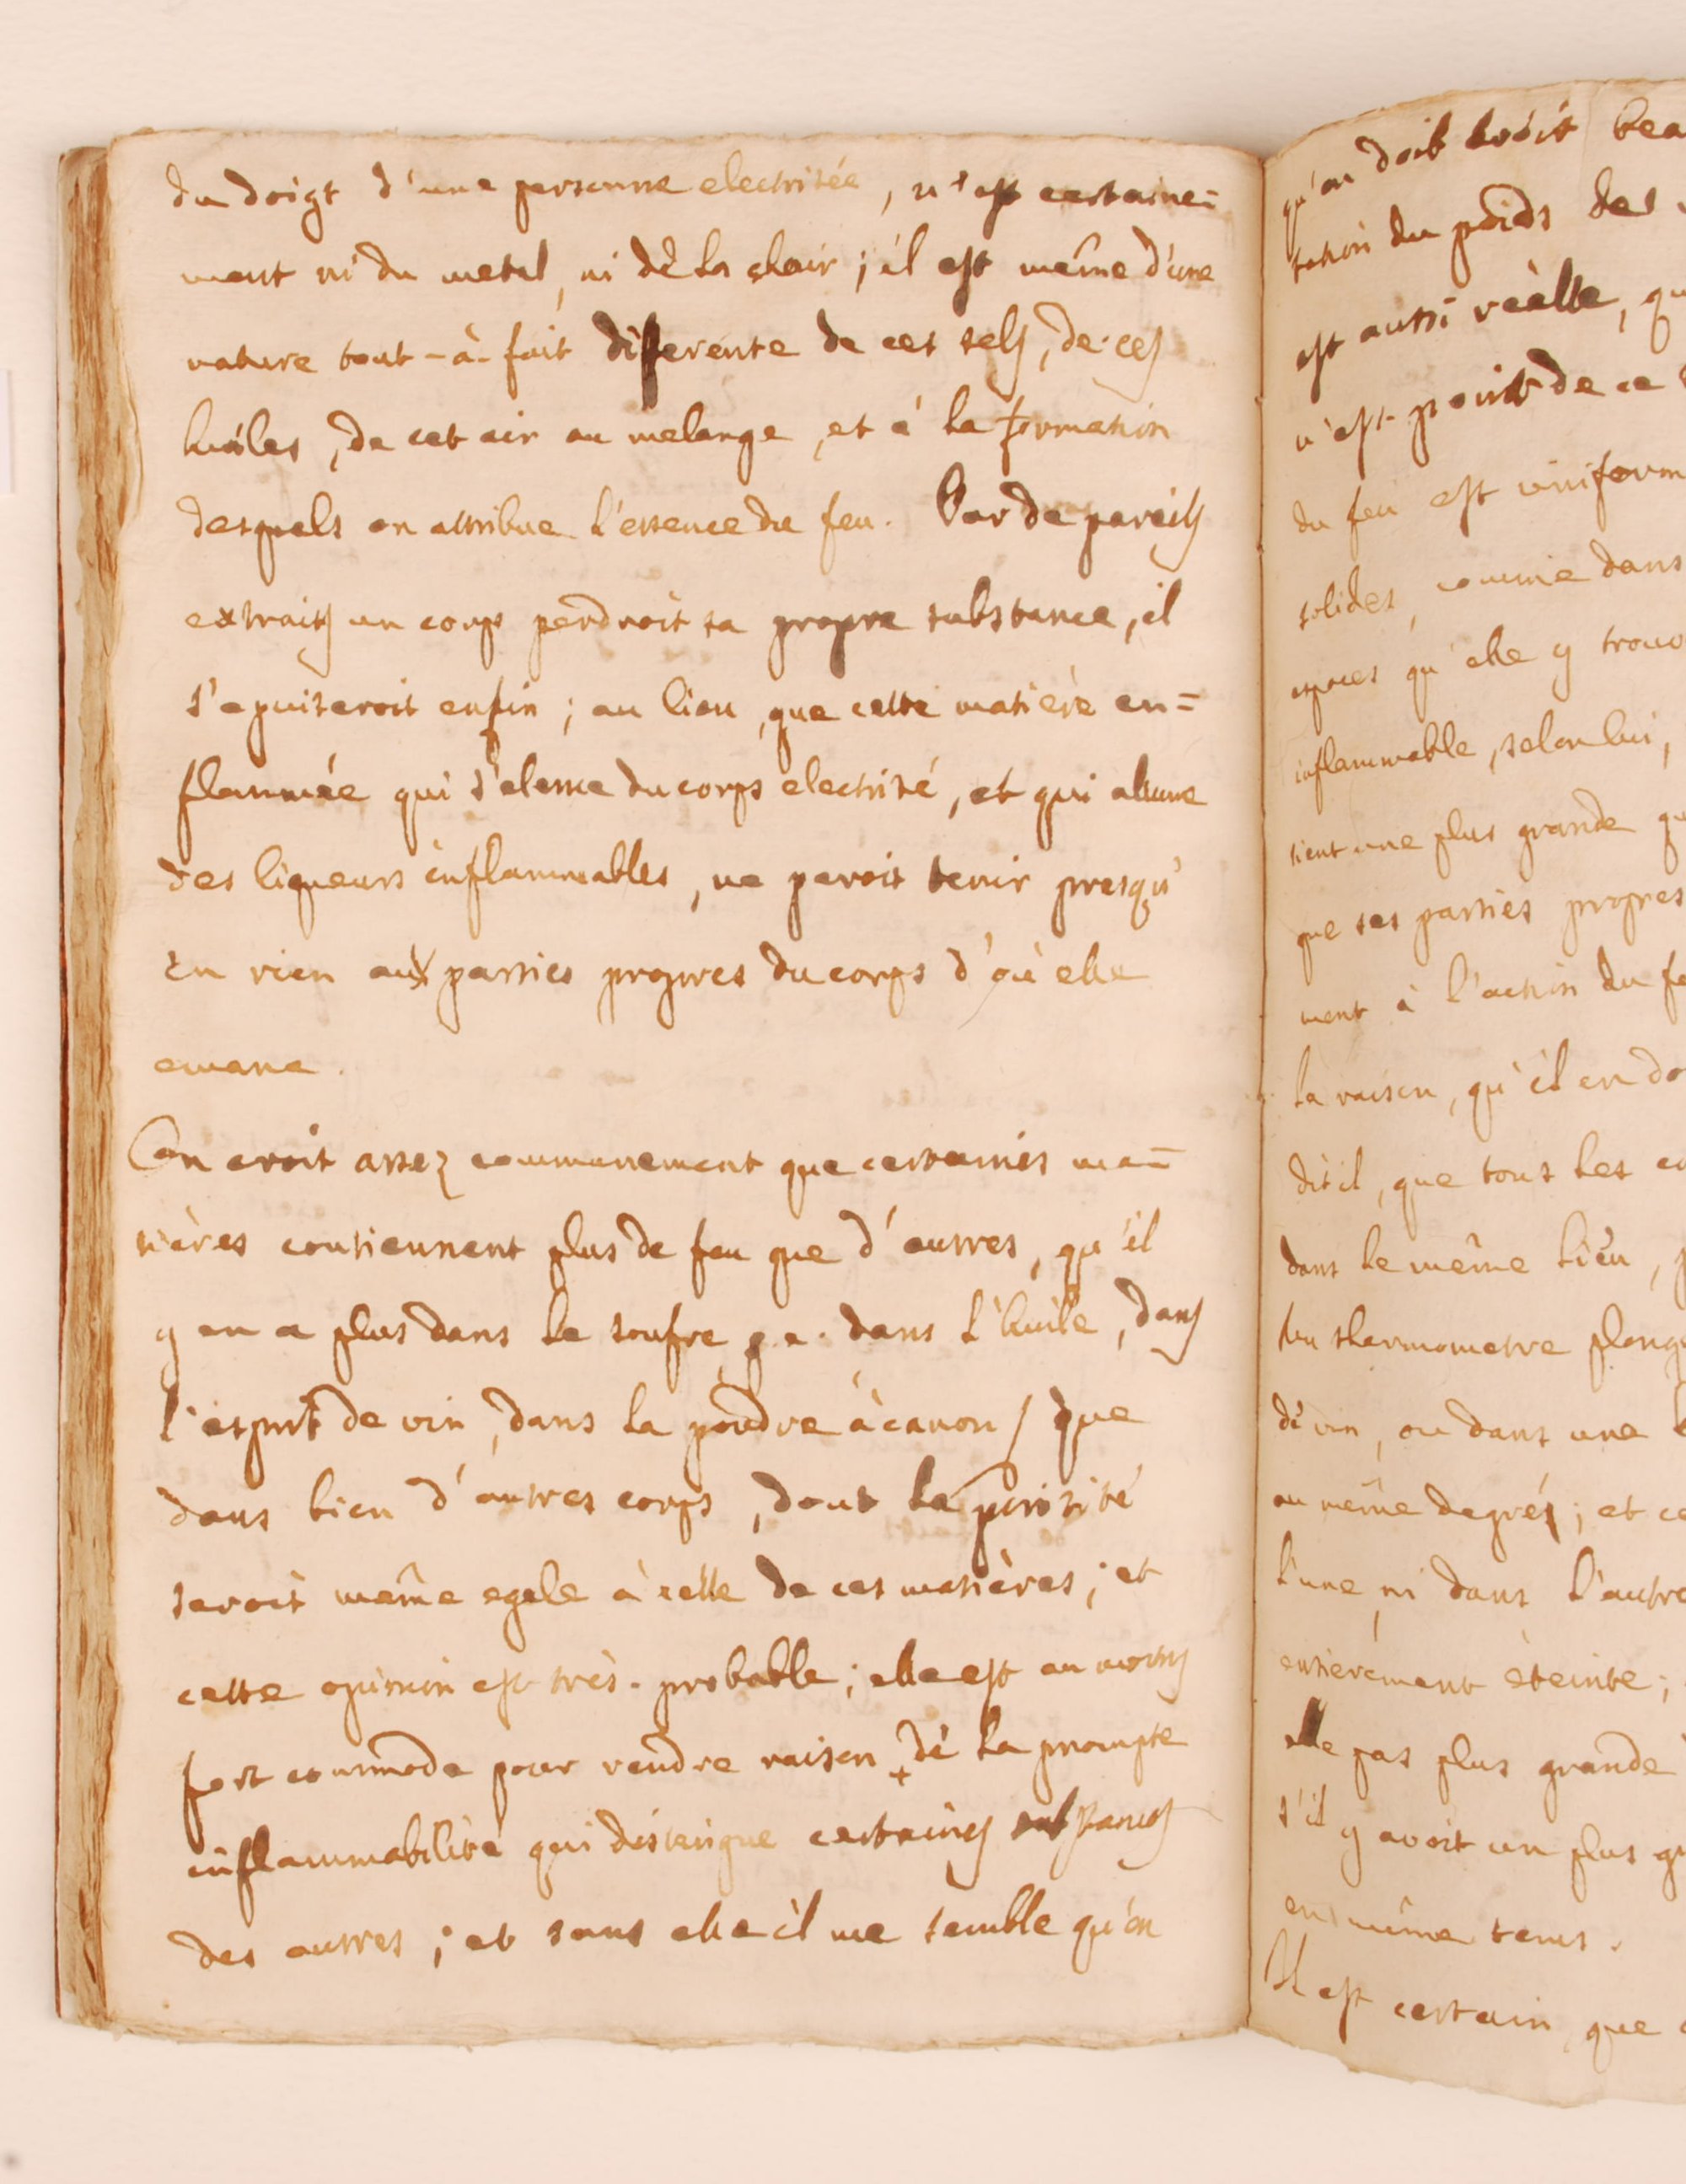 du doigt d'une personne electrisée, n'est certaine=
ment ni du metal, ni de la chair; il est même d'une
nature tout-à-fait differente de ces sels, de ces
huiles, de cet air au melange, et à la formation
desquels on attribue l'essence du feu. Par de pareils
extraits un corps perdroit sa propre substance, il
s'epuiseroit enfin; au lieu, que cette matière en=
flammée qui s'elance du corps electrisé, et qui allume
des liqueurs inflammables, ne paroit tenir presqu'
en rien aux parties propres du corps d'où elle
emane.
On croit assez communement que certaines ma=
tières contiennent plus de feu que d'autres, qu'il
y en a plus dans le soufre p.e. dans l'huile, dans
l'esprit de vin, dans la poudre à canon / que
dans bien d'autres corps, dont la porosité
seroit même egale à celle de ces matières; et
cette opinion est très-probable; elle est au moins
fort commode pour rendre raison + de la prompte
inflammabilité qui distingue certaines substances
des autres; et sans elle il me semble qu'on
qu'on doit croit bea
tation du poids des
est aussi réelle, qu
n'est point de ce
du feu est uniform
solides, comme dans
espaces qu'elle y trouv
inflammable, selon lui,
tient une plus grande qu
que ses parties propres
ment à l'action du fe
la raison, qu'il en do
dit il, que tous les co
dans le même lieu, p
un thermometre plong
de vin, ou dans une
au même degrés; et ce
l'une, ni dans l'autre
entièrement éteinte;
elle pas plus grande
s'il y avoit un plus gr
en même tems.
Il est certain, que